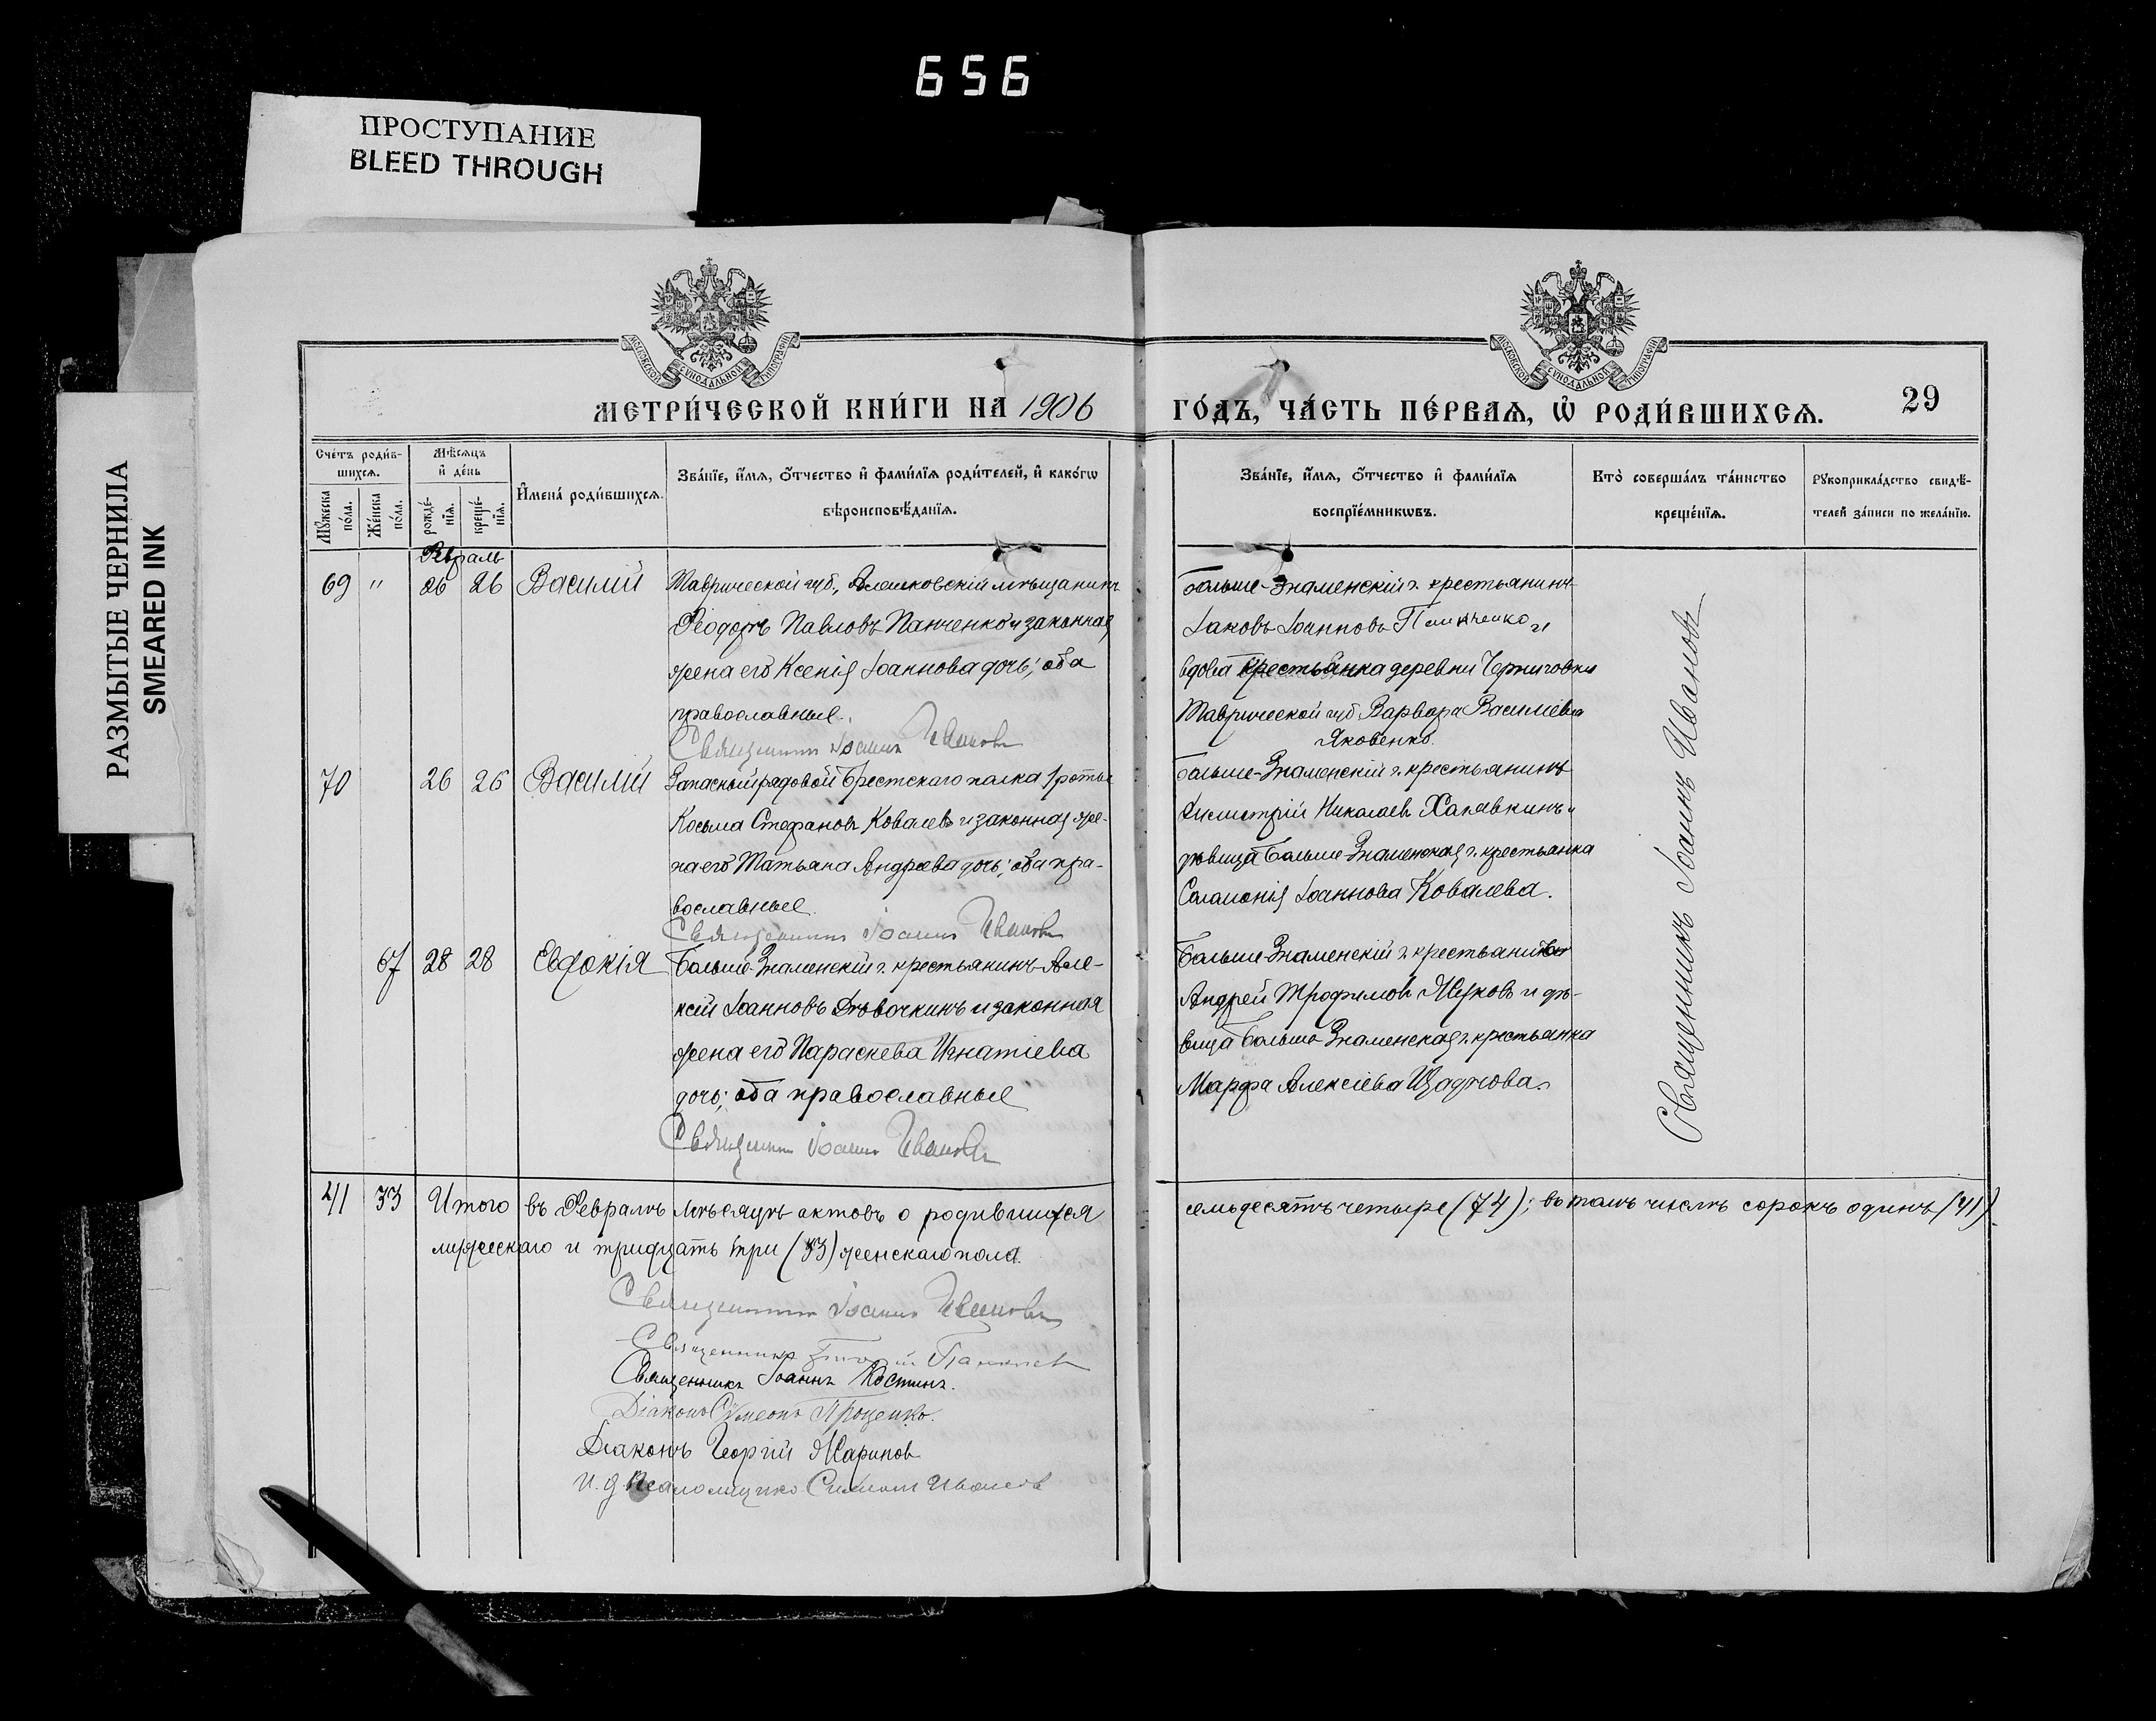 656
ПРОСТУПАНИЕ
BLEED THROUGH
РАЗМЫТЫЕ ЧЕРНИЛА
SMEARED INK
МОСКОВСКОЙ СѴНОДАЛЬНОЙ ТИПОГРАФІИ
МОСКОВСКОЙ СѴНОДАЛЬНОЙ ТИПОГРАФІИ
МЕТРИ́ЧЕСКОЙ КНИ́ГИ НА 1906
ГО́ДЪ, ЧА́СТЬ ПЕ́РВАѦ, Ѡ РОДИ́ВШИХСѦ.
29
Сче́тъ роди́в-
шихсѧ.
Мꙋ́жеска по́ла.
Же́нска по́ла.
Мѣ́сѧцъ
и҆ де́нь
рожде́-
нїѧ.
креще́-
нїѧ.
И҆мена̀ роди́вшихсѧ.
Зва́нїе, и҆́мѧ, ѻ҆́тчество и҆ фами́лїѧ роди́телей, и҆ како́гѡ
вѣроисповѣ́данїѧ.
Зва́нїе, и҆́мѧ, ѻ҆́тчество и҆ фами́лїѧ
воспрїе́мникѡвъ.
Кто̀ соверша́лъ та́инство
креще́нїѧ.
Рꙋкоприкла́дство свидѣ́-
телей за́писи по жела́нїю.
Февраль
69 " 26 26 Василій
Таврической губ., Алешковскій мѣщанинъ
Ѳеодоръ Павловъ Панченко и законная
жена его Ксенія Іоаннова дочь; оба
православные.
Священникъ Іоаннъ Ивановъ
Больше-Знаменскій г. крестьянинъ
Іаковъ Іоанновъ и
вдова крестьянка деревни Черниговки
Таврической губ. Варвара Василіева
Яковенко.
70 26 26 Василій
Запасный рядовой Брестскаго полка 1 роты
Косьма Стефановъ Ковалевъ и законная же-
на его Татьяна Андреева дочь; оба пра-
вославные.
Священникъ Іоаннъ Ивановъ
Больше-Знаменскій г. крестьянинъ
Димитрій Николаевъ Халявкинъ и
дѣвица Больше-Знаменская г. крестьянка
Соломонія Іоаннова Ковалева.
67 28 28 Евдокія
Больше-Знаменскій г. крестьянинъ Але-
ксій Іоанновъ Дѣвочкинъ и законная
жена его Параскева Игнатіева
дочь; оба православные
Священникъ Іоаннъ Ивановъ
Больше-Знаменскій г. крестьянинъ
Андрей Трофимовъ Жуковъ и дѣ-
вица Больше-Знаменская г. крестьянка
Марфа Алексіева
Священникъ Іоаннъ Ивановъ
41 33 Итого въ Февралѣ мѣсяцѣ актовъ о родившихся
семьдесятъ четыре (74); въ томъ числѣ сорокъ одинъ (41)
мужескаго и тридцать три (33) женскаго пола.
Священникъ Іоаннъ Ивановъ
Священникъ
Священникъ Іоаннъ Костинъ.
Діаконъ Сѵмеонъ Проценко.
Діаконъ Георгій Мариновъ
И. д. Псаломщика